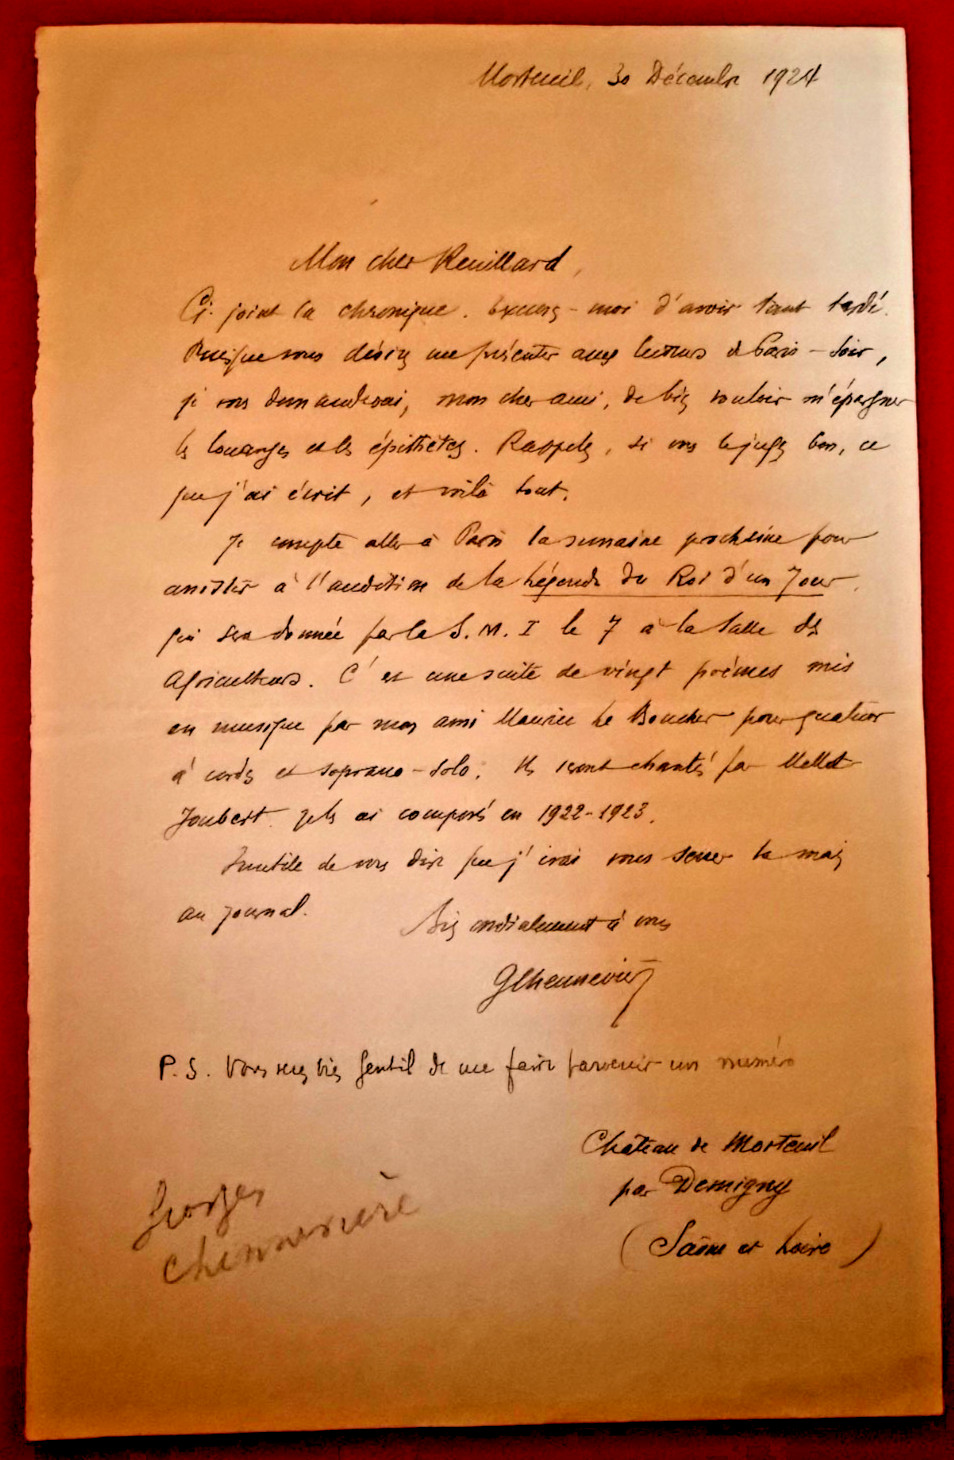 Morteuil, 30 Décembre 1924
Mon cher Reuillard,
Ci-joint la chronique. Excusez-moi d'avoir tant tardé.
Puisque vous désirez me présenter aux lecteurs de Paris-Soir,
je vous demanderai, mon cher ami, de bien vouloir m'épargner
les louanges et les épithètes. Rappelez, si vous le jugez bon, ce
que j'ai écrit, et voilà tout.
Je compte aller à Paris la semaine prochaine pour
assister à l'audition de la Légende du Roi d'un Jour,
qui sera donnée par la S.M.I le 7 à la Salle des
Agriculteurs. C'est une suite de vingt poèmes mis
en musique par mon ami Maurice Le Boucher pour quatuor
à cordes et soprano-solo. Ils seront chantés par Mellot
Joubert. Je les ai composés en 1922-1923.
Inutile de vous dire que j'irai vous serrer la main
au journal.
Bien cordialement à vous
GChennevière
P.S. Vous seriez bien gentil de me faire parvenir un numéro
Château de Morteuil
par Demigny
(Saône et Loire)
Georges
Chennevière